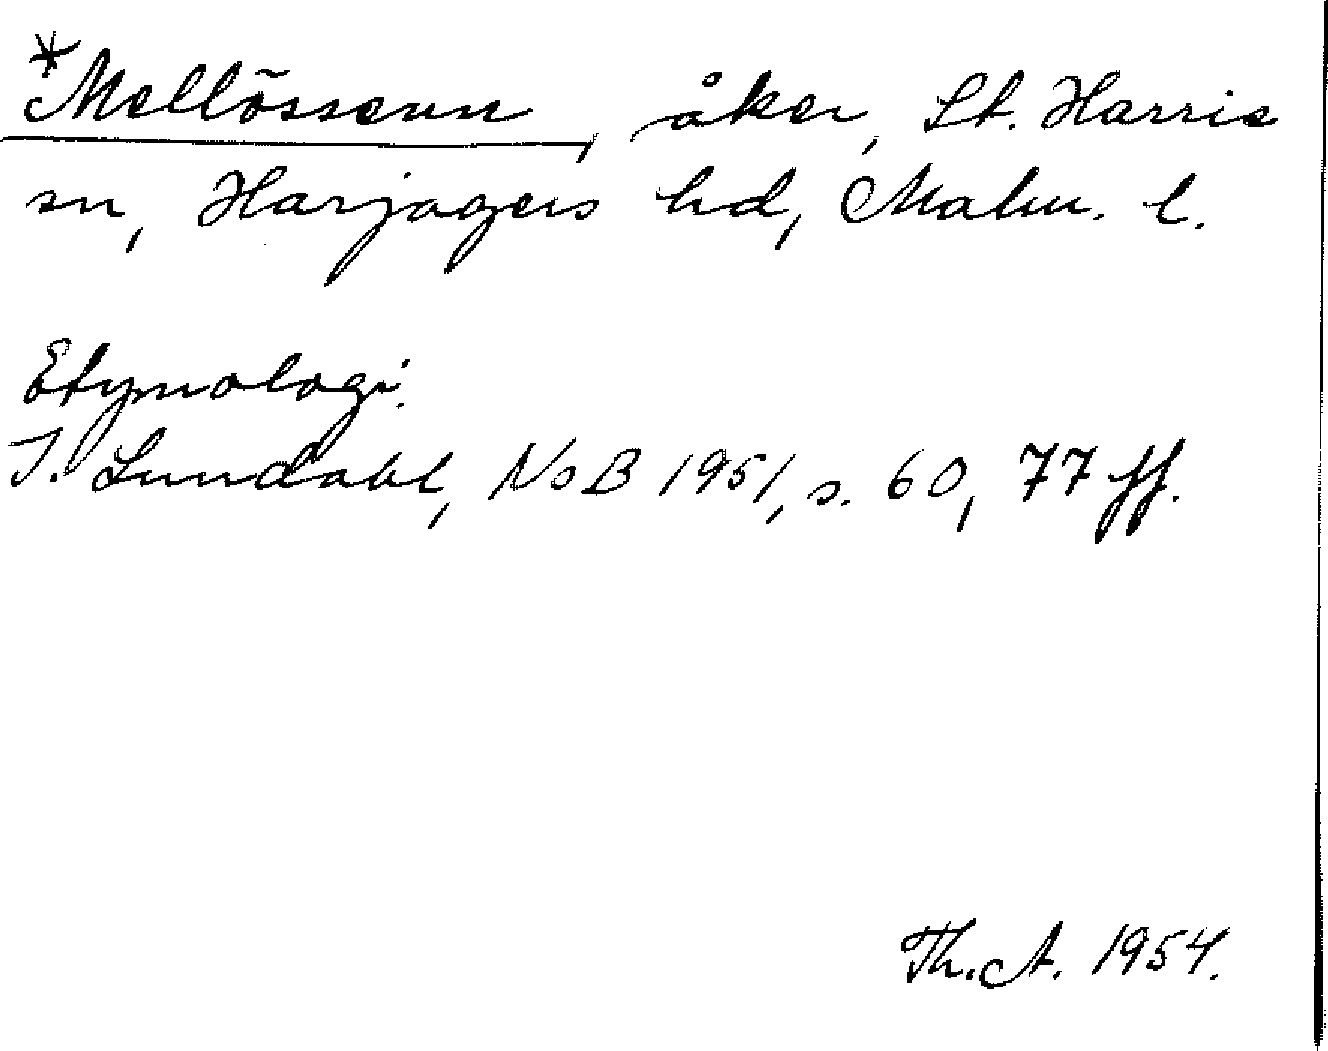 *Mellösseun, åker, St. Harrie
sn, Harjagers hd, Malm. l.
Etymologi.
I. Lundahl, NoB 1951, s. 60, 77 ff.
Th. A. 1954.